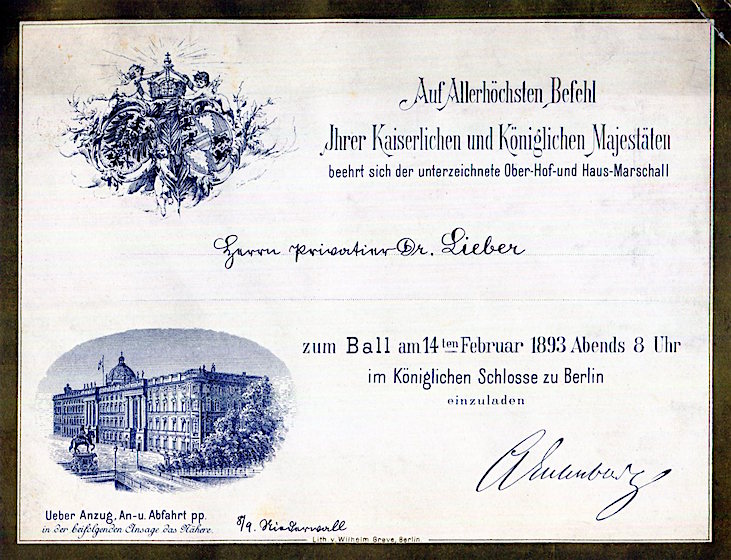 Auf Allerhöchsten Befehl
Ihrer Kaiserlichen und Königlichen Majestäten
beehrt sich der unterzeichnete Ober-Hof-und Haus-Marschall
Herrn Privatier Dr. Lieber
zum Ball am 14ten Februar 1893 Abends 8 Uhr
im Königlichen Schlosse zu Berlin
einzuladen
A Eulenburg
Ueber Anzug, An-u. Abfahrt pp.
in der beifolgenden Ansage das Nähere.
8/9. Niederwall
Lith. v. Wilhelm Greve, Berlin.